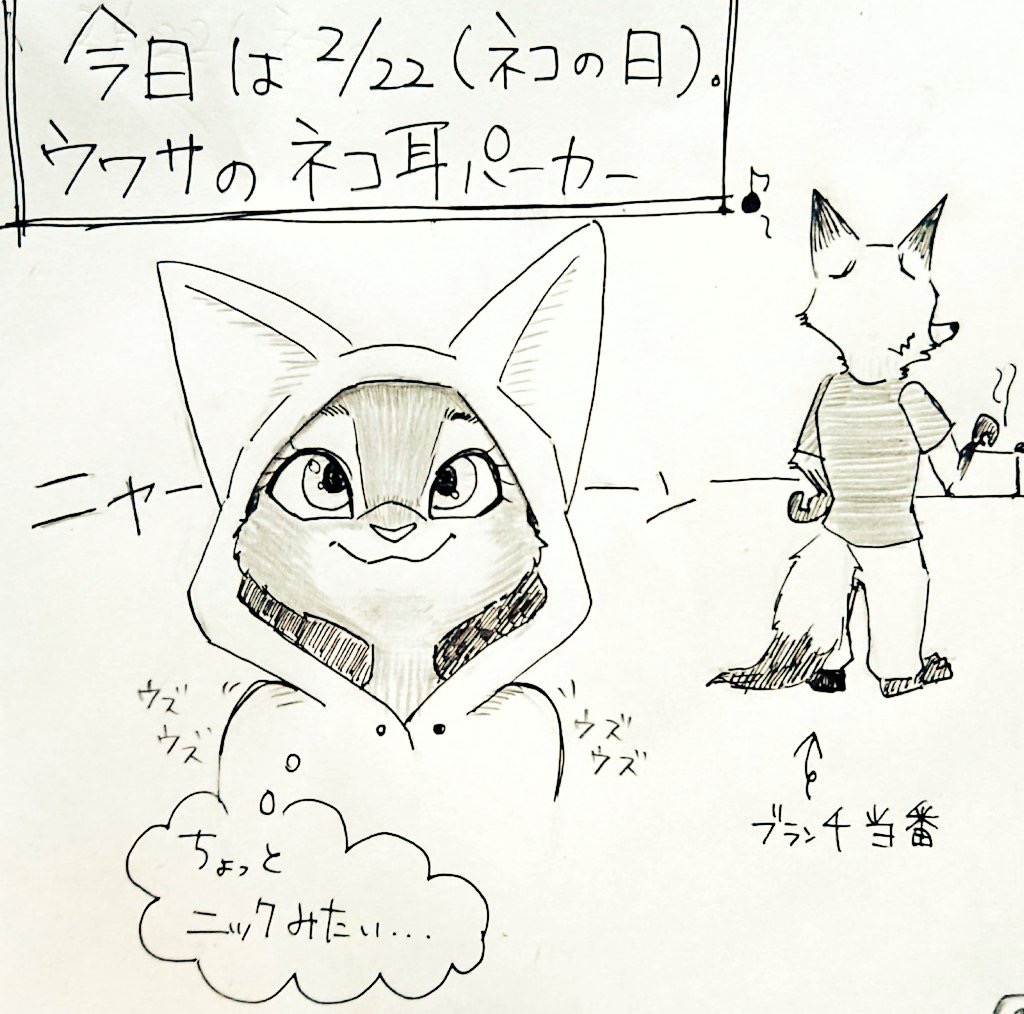 今日は 2/22 (ネコの日).
ウワサの ネコ耳パーカー
ニャーーン
ウズ
ウズ
ウズ
ウズ
ちょっと
ニックみたい...
ブランチ当番